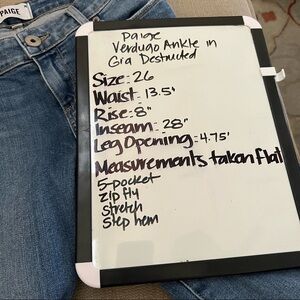 PAIGE
Paige
Verdugo Ankle in
Gia Destructed
Size: 26
Waist: 13.5"
Rise: 8"
Inseam: 28"
Leg Opening: 4.75"
Measurements taken flat
5-pocket
zip fly
Stretch
Step hem